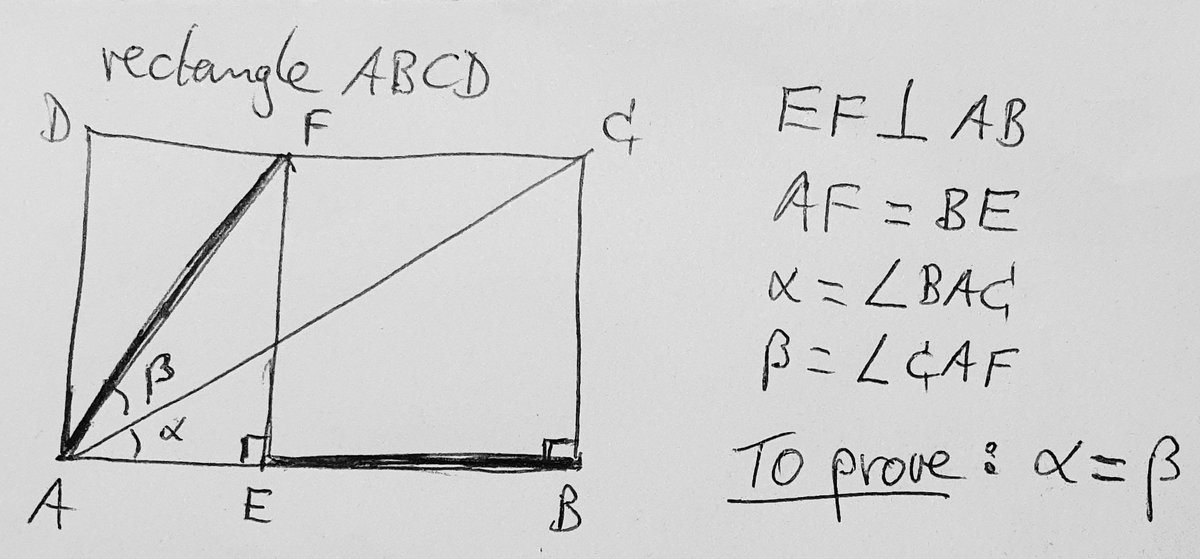 rectangle ABCD
D F C
β
α
A E B
EF ⊥ AB
AF = BE
α = ∠BAC
β = ∠CAF
To prove: α = β